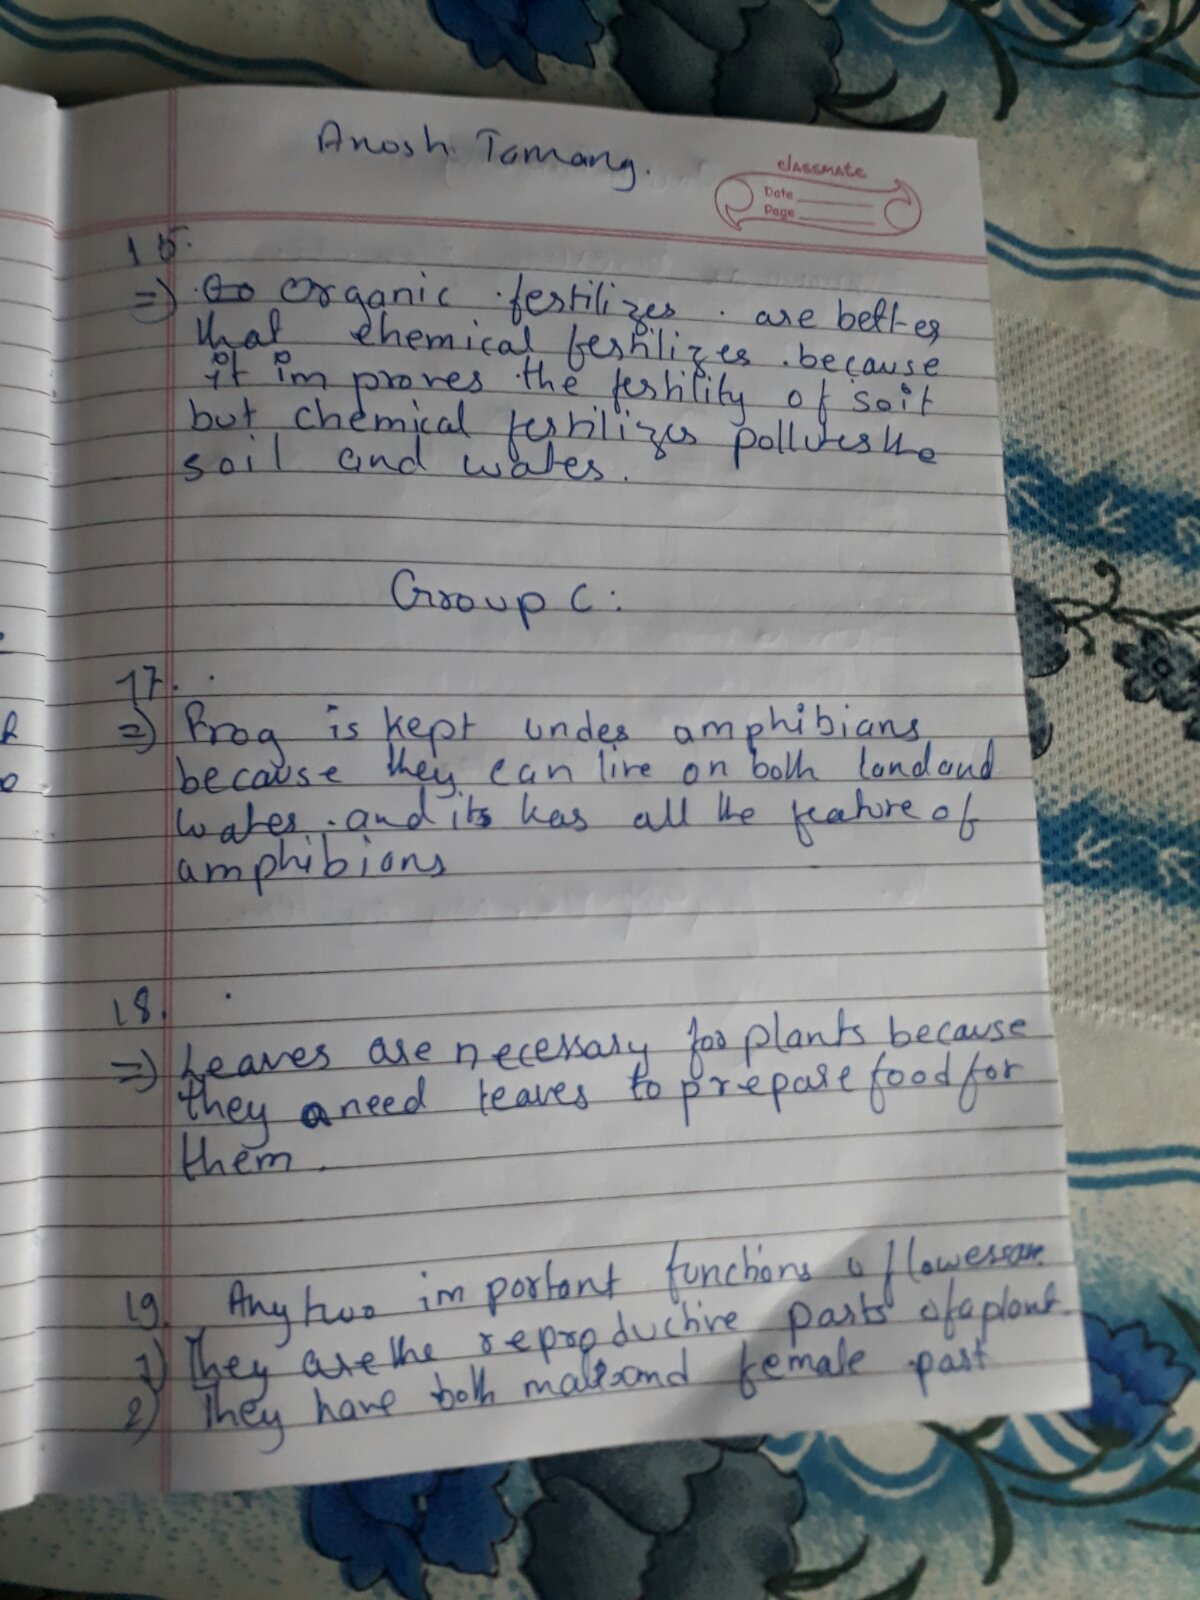 Anosh Tamang.
classmate
Date
Page
15.
=> Organic fertilizer are better
that chemical fertilizer because
it improves the fertility of soil
but chemical fertilizer pollutes the
soil and water.
Group C:
17.
=> Frog is kept under amphibians
because they can live on both land and
water. and its has all the feature of
amphibians
18.
=> Leaves are necessary for plants because
they need leaves to prepare food for
them.
19. Any two important functions of flowers are
1) They are the reproductive parts of a plant.
2) They have both male and female part
R